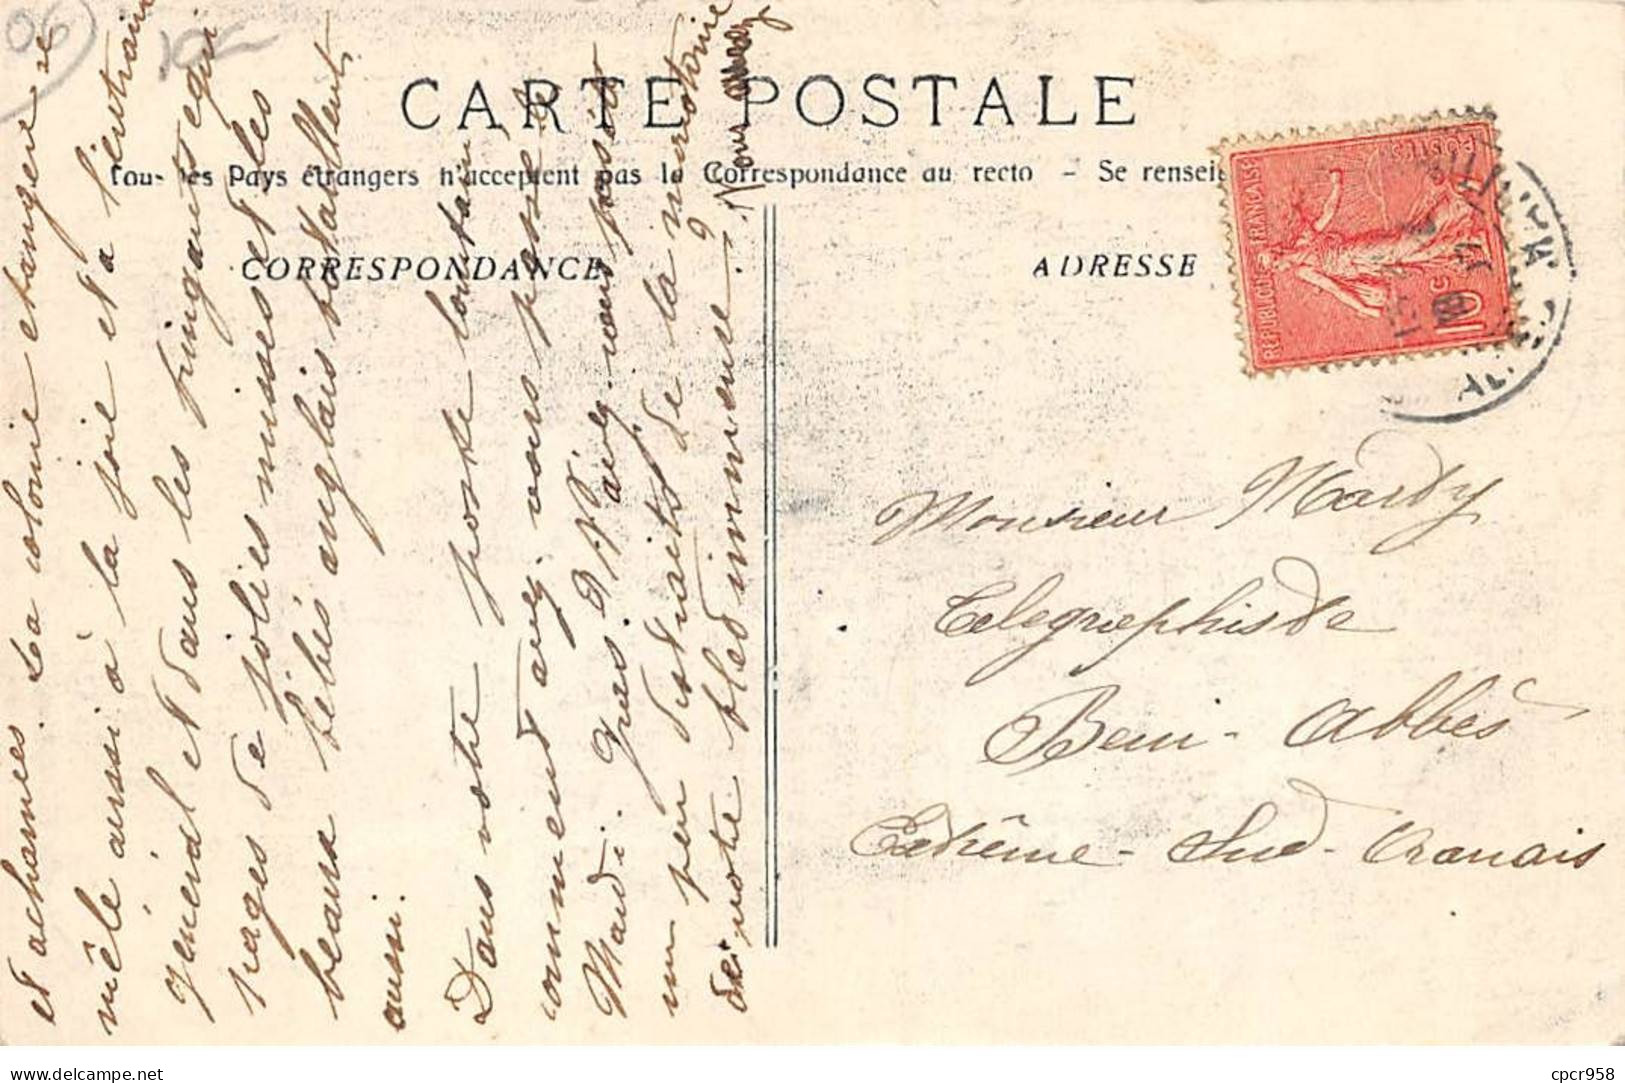 CARTE POSTALE
Tous les Pays étrangers n'acceptent pas la Correspondance au recto - Se renseig
CORRESPONDANCE
ADRESSE
et acharnées. La colonie étrangère se
mêle aussi à la joie et à l'entrain
général et dans les fringants équi
pages de jolies misses et les
beaux bébés anglais bataillent
aussi.
Dans votre poste lointain,
comment avez vous passé le
Mardi-Gras? N'avez-vous pas été
un peu distraits de la monotonie
de votre bled immense? Vous avez
Monsieur Mardy
Télégraphiste
Beni-Abbès
Extrême-Sud-Oranais
REPUBLIQUE FRANÇAISE
POSTES
10 c
06
cpcr958